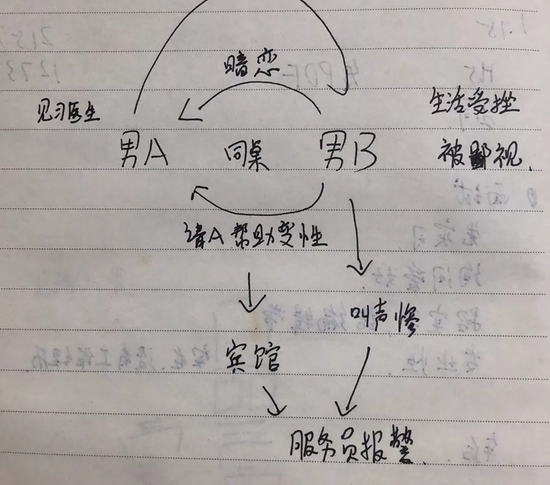 暗恋
见习医生
生活受挫
男A 同桌 男B 被鄙视.
请A帮助变性
叫声惨
宾馆
服务员报警.